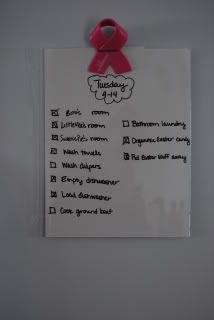 Tuesday
4-14
Boy's room
Littlehits room
Sweetie's room
Wash towels
Wash diapers
Empty dishwasher
Load dishwasher
Cook ground beef
Bathroom laundry
Organize Easter candy
Put Easter stuff away